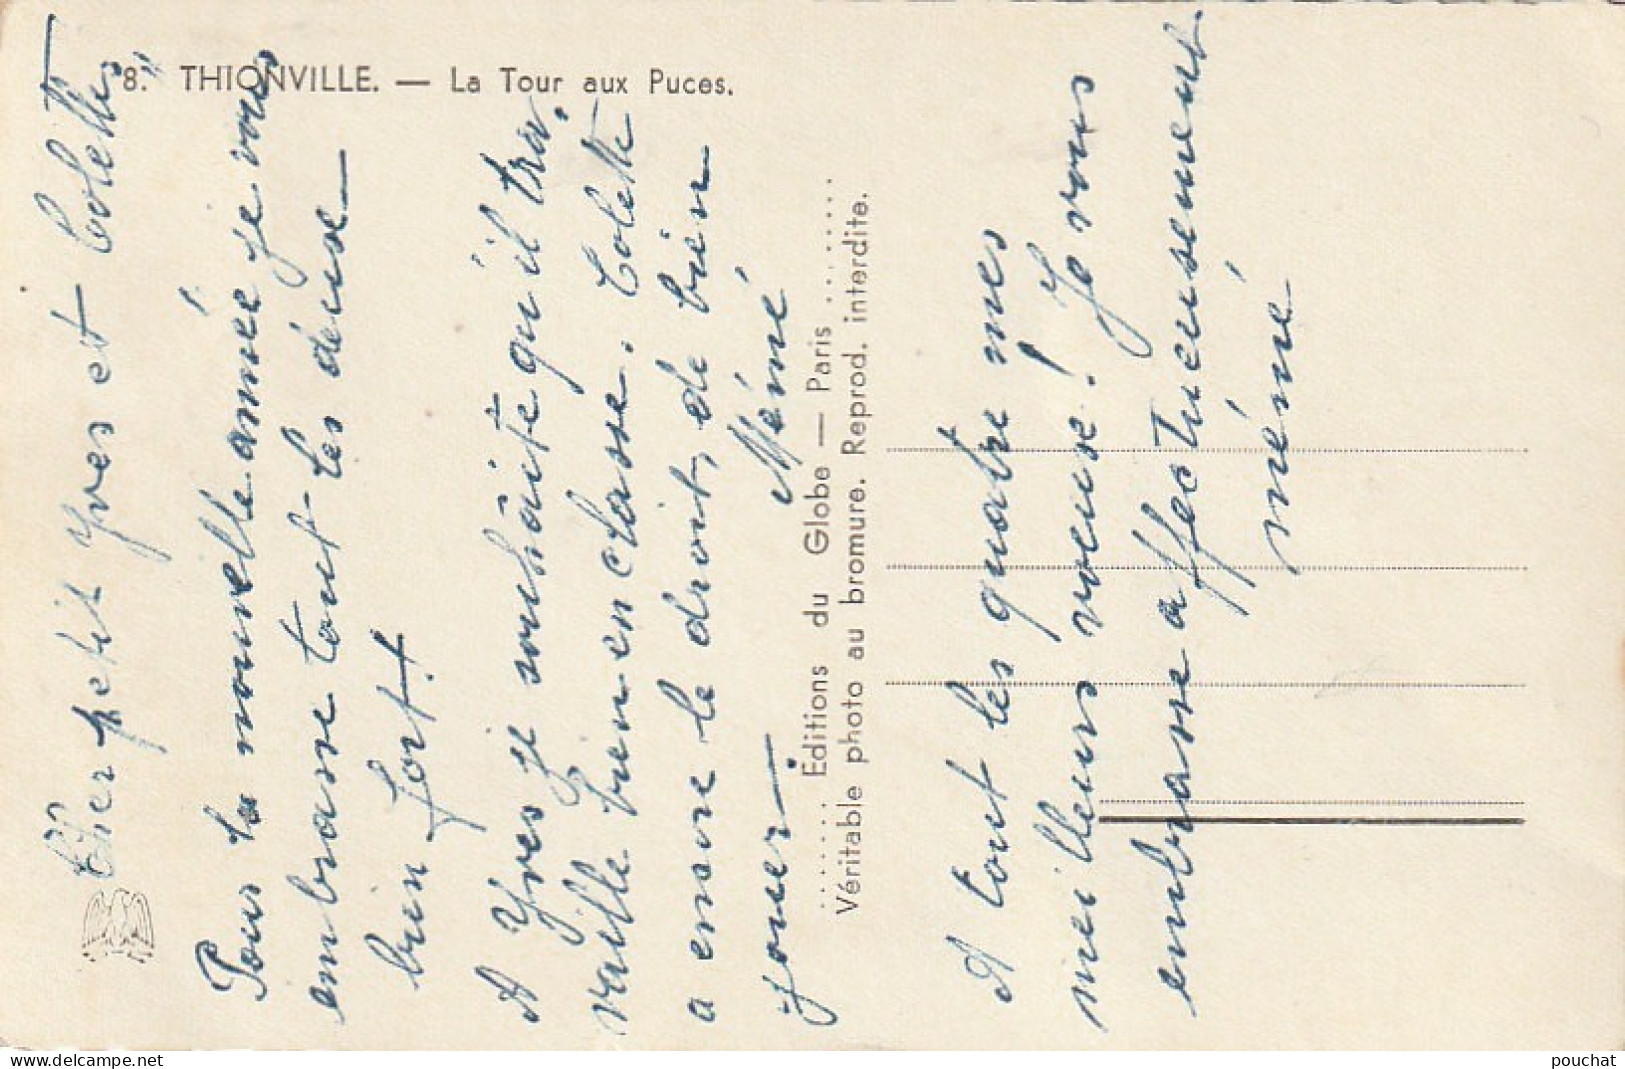 8. THIONVILLE. — La Tour aux Puces.
Cher petit Yves et Colette
Pour la nouvelle année je vous
embrasse tout les deux
bien fort!
A Yves je souhaite qu'il tra-
vaille bien en classe. Colette
a encore le droit, de bien
jouer —
Mémé
Éditions du Globe — Paris
Véritable photo au bromure. Reprod. interdite.
A tout les quatre mes
meilleurs voeux! Je vous
embrasse affectueusement.
mémé
delcampe.net
pouchat